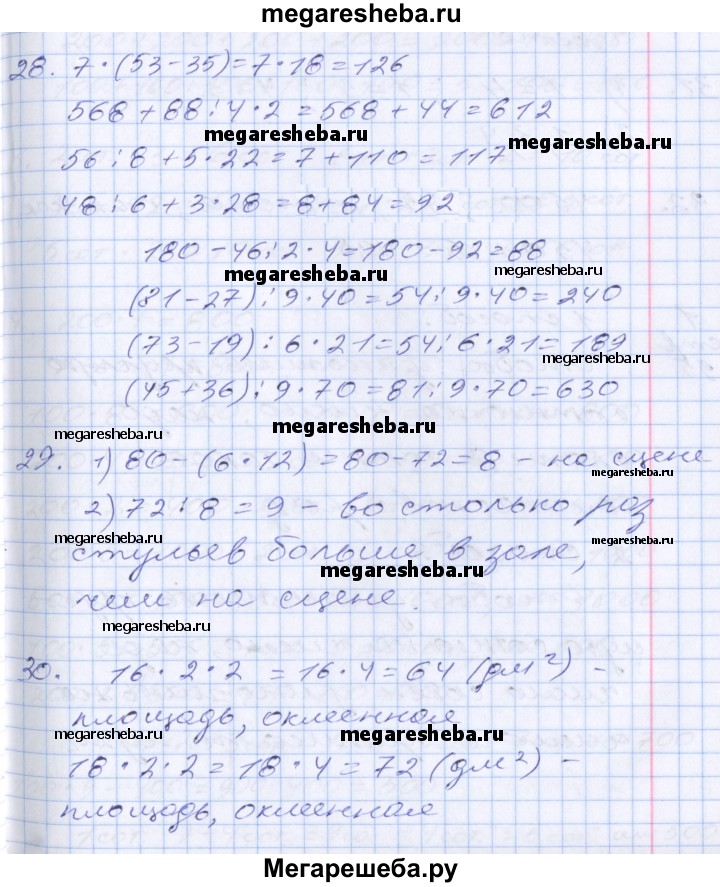 megaresheba.ru
28. 7·(53-35)=7·18=126
568+88:4·2=568+44=612
megaresheba.ru megaresheba.ru
56:8+5·22=7+110=117
48:6+3·28=8+84=92
180-46:2·4=180-92=88
megaresheba.ru megaresheba.ru
(81-27):9·40=54:9·40=240
(73-19):6·21=54:6·21=189
megaresheba.ru
(45+36):9·70=81:9·70=630
megaresheba.ru megaresheba.ru
29. 1) 80-(6·12)=80-72=8 - на сцене
megaresheba.ru
2) 72:8=9 - во столько раз
megaresheba.ru megaresheba.ru
стульев больше в зале,
megaresheba.ru megaresheba.ru
чем на сцене.
megaresheba.ru
30. 16·2·2=16·4=64 (дм²) -
площадь, оклеенная
megaresheba.ru megaresheba.ru
18·2·2=18·4=72 (дм²) -
площадь, оклеенная
Мегарешеба.ру